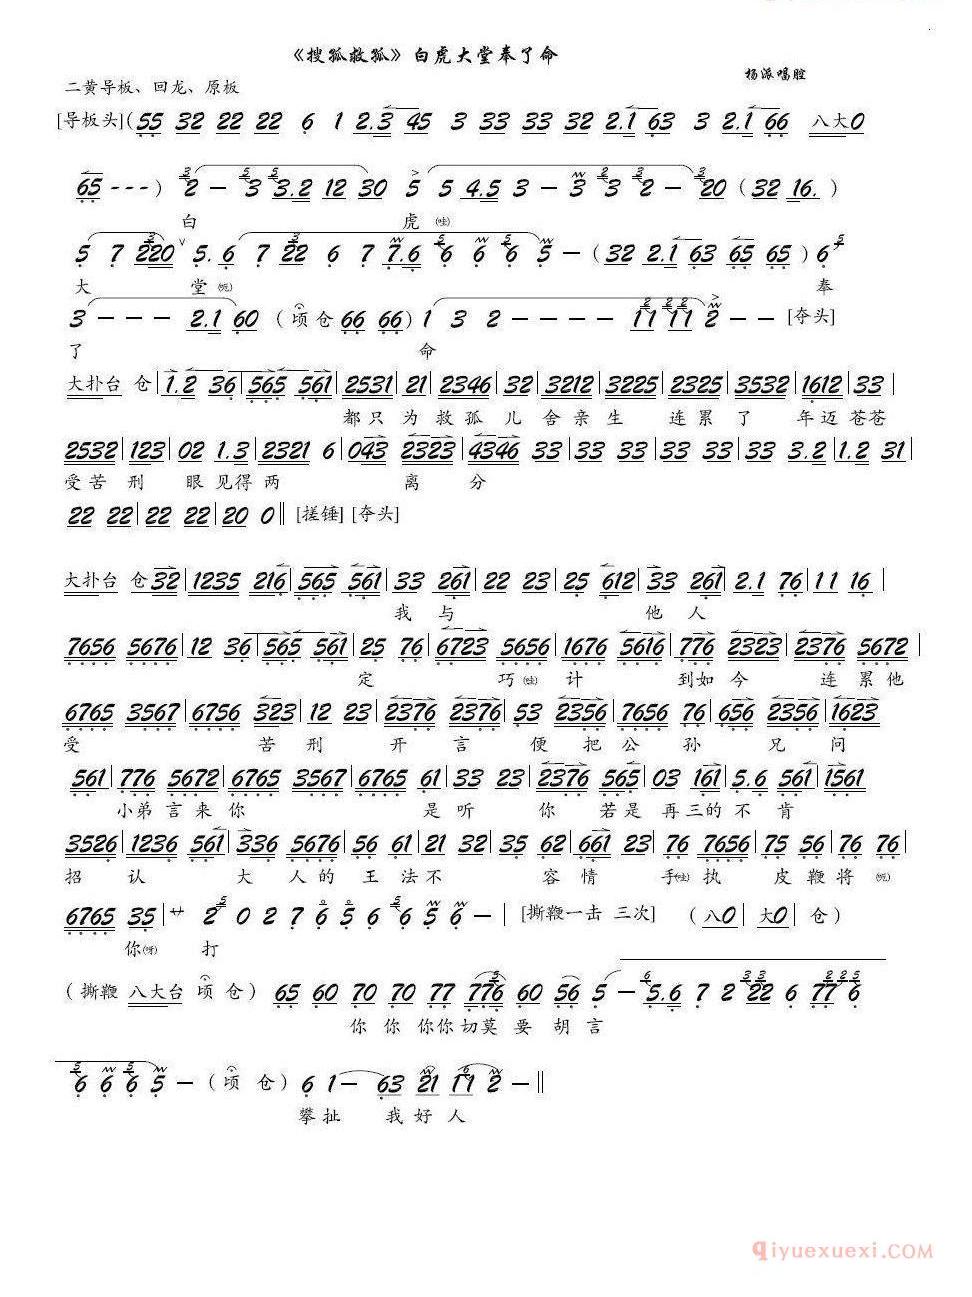 《搜孤救孤》白虎大堂奉了命
杨派唱腔
二黄导板、回龙、原板
[导板头](55 32 22 22 6 1 2.3 45 3 33 33 32 2.1 63 3 2.1 66 八大0
65 - - -) 2 - 3 3.2 12 30 5 5 4.5 3 - 3 3 2 - 20 (32 16.)
白 虎(哇)
5 7 220 5. 6 7 22 6 7 7.6 6 6 6 5 - (32 2.1 63 65 65) 6
大 堂 奉
3 - - - 2.1 60 (顷仓 66 66) 1 3 2 - - - - 11 11 2 - - [夺头]
了 命
大扑台 仓 | 1.2 36 | 565 561 | 2531 | 21 | 2346 | 32 | 3212 | 3225 | 2325 | 3532 | 1612 | 33 |
都只为救孤儿舍亲生 连累了 年迈苍苍
2532 | 123 | 02 1.3 | 2321 6 | 043 2323 | 4346 33 | 33 33 | 33 3.2 | 1.2 31 |
受苦刑 眼见得两 离 分
22 22 | 22 22 | 20 0 ‖ [搓锤] [夺头]
大扑台 仓 32 | 1235 216 | 565 561 | 33 261 | 22 23 | 25 612 | 33 261 | 2.1 76 | 11 16 |
我与 他人
7656 5676 | 12 36 | 565 561 | 25 76 | 6723 5656 | 1676 5616 | 776 2323 | 2376 5672 |
定 巧(哇)计 到如今 连累他
6765 3567 | 6756 323 | 12 23 | 2376 2376 | 53 2356 | 7656 76 | 656 2356 | 1623
受 苦刑开言便把公孙兄问
561 | 776 5672 | 6765 3567 | 6765 61 | 33 23 | 2376 565 | 03 161 | 5.6 561 | 1561
小弟言来你 是听 你 若是再三的不肯
3526 | 1236 561 | 336 5676 | 56 61 | 21 32 | 35 62 | 661 23 | 76 7656 | 75 76 | 76 76 |
招认 大人的王法不 容情 手(哇)执 皮鞭将
6765 35 | 艹 2 0 2 7 6 5 6 6 5 6 - | [撕鞭一击 三次] (八0 | 大0 | 仓)
你(呀) 打
(撕鞭 八大台 顷仓) 65 60 70 70 77 776 60 56 5 - 5.6 7 2 22 6 77 6
你你你你切莫要胡言
6 6 6 5 - (顷 仓) 6 1 - 63 21 11 2 - ‖
攀扯 我好人
qiyuexuexi.COM